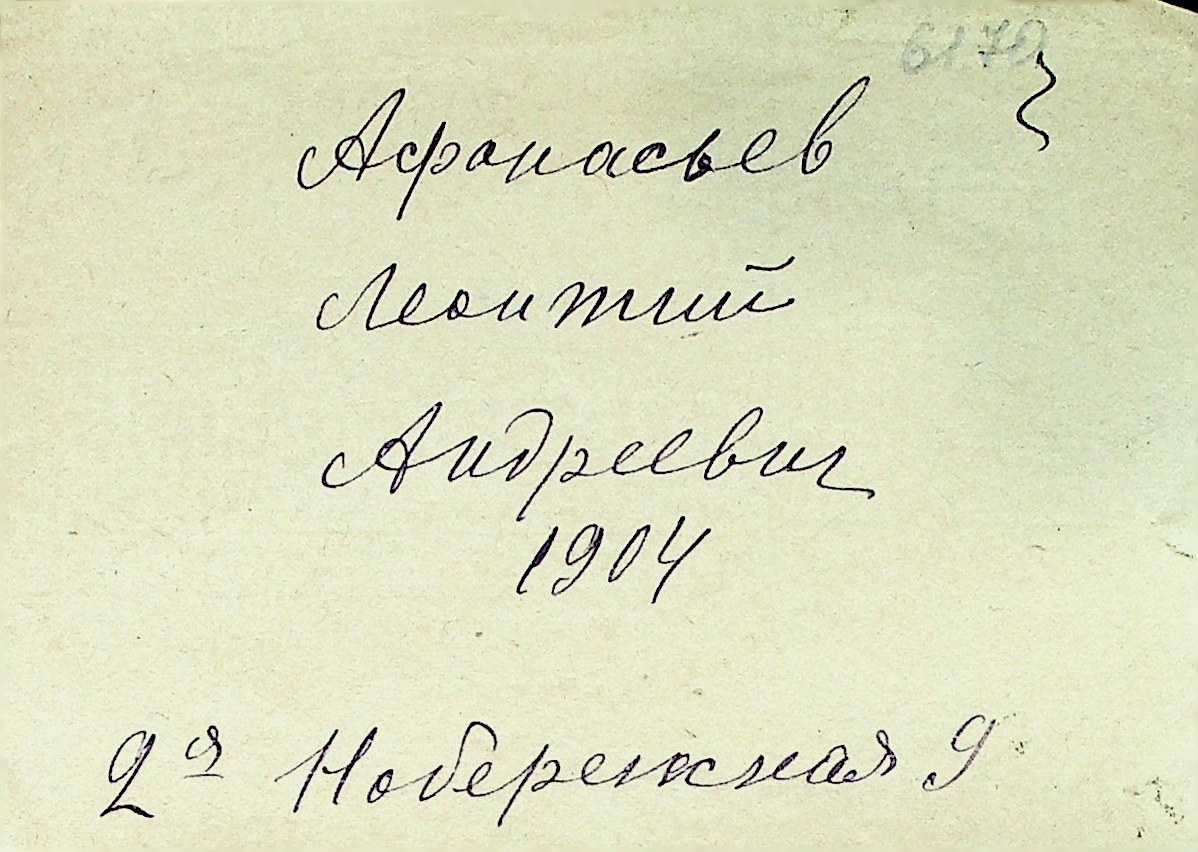 6170
Афонасьев
Леонтий
Андреевич
1904
2я Набережная 9